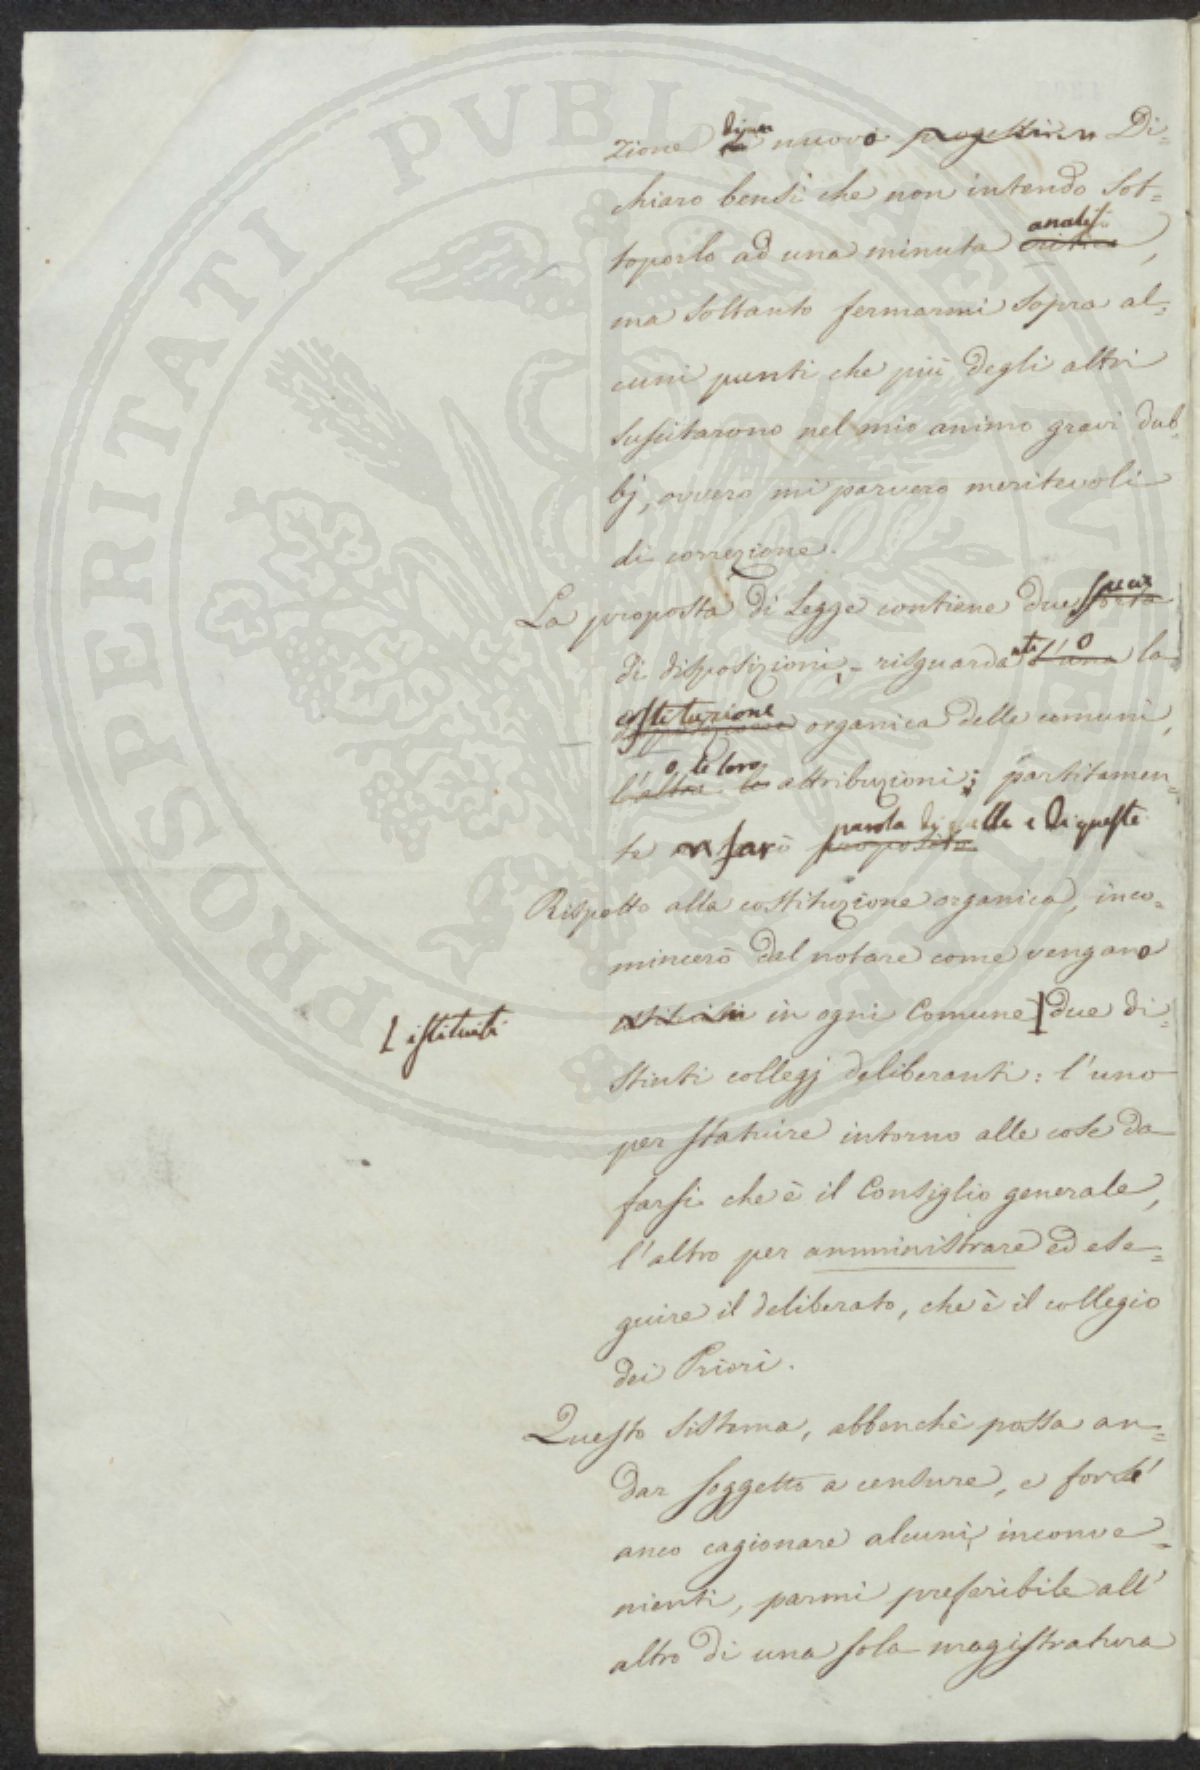 zione di un nuovo progetto. Di=
chiaro bensì che non intendo sot=
toporlo ad una minuta critica analisi,
ma soltanto fermarmi sopra al=
cuni punti che più degli altri
suscitarono nel mio animo gravi dub=
bj, ovvero mi parvero meritevoli
di correzione.
La proposta di Legge contiene due sorta specie
di disposizioni, - risguardanti l'una o la
costituzione organica delle comuni,
l'altra o le loro attribuzioni; partitamen=
te farò proposito parola di quelle e di queste
Rispetto alla costituzione organica, inco=
mincerò dal notare come vengano
in ogni Comune due di=
istituiti
stinti collegj deliberanti: l'uno
per statuire intorno alle cose da
farsi che è il Consiglio generale,
l'altro per amministrare ed ese=
guire il deliberato, che è il collegio
dei Priori.
Questo sistema, abbenchè possa an=
dar soggetto a censure, e forse
anco cagionare alcuni inconve=
nienti, parmi preferibile all'
altro di una sola magistratura
PROSPERITATI PVBLICAE AVGENDAE